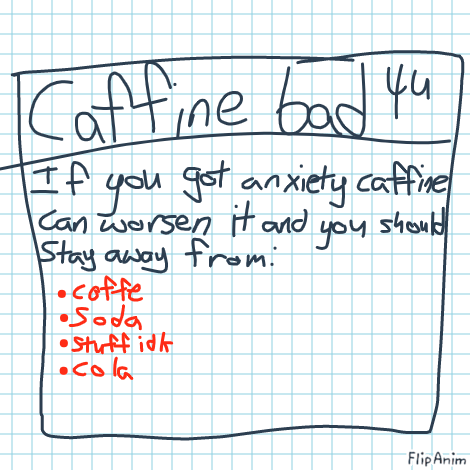 Caffine bad 4u
If you got anxiety caffine
can worsen it and you should
stay away from:
• coffe
• soda
• stuff idk
• cola
FlipAnim